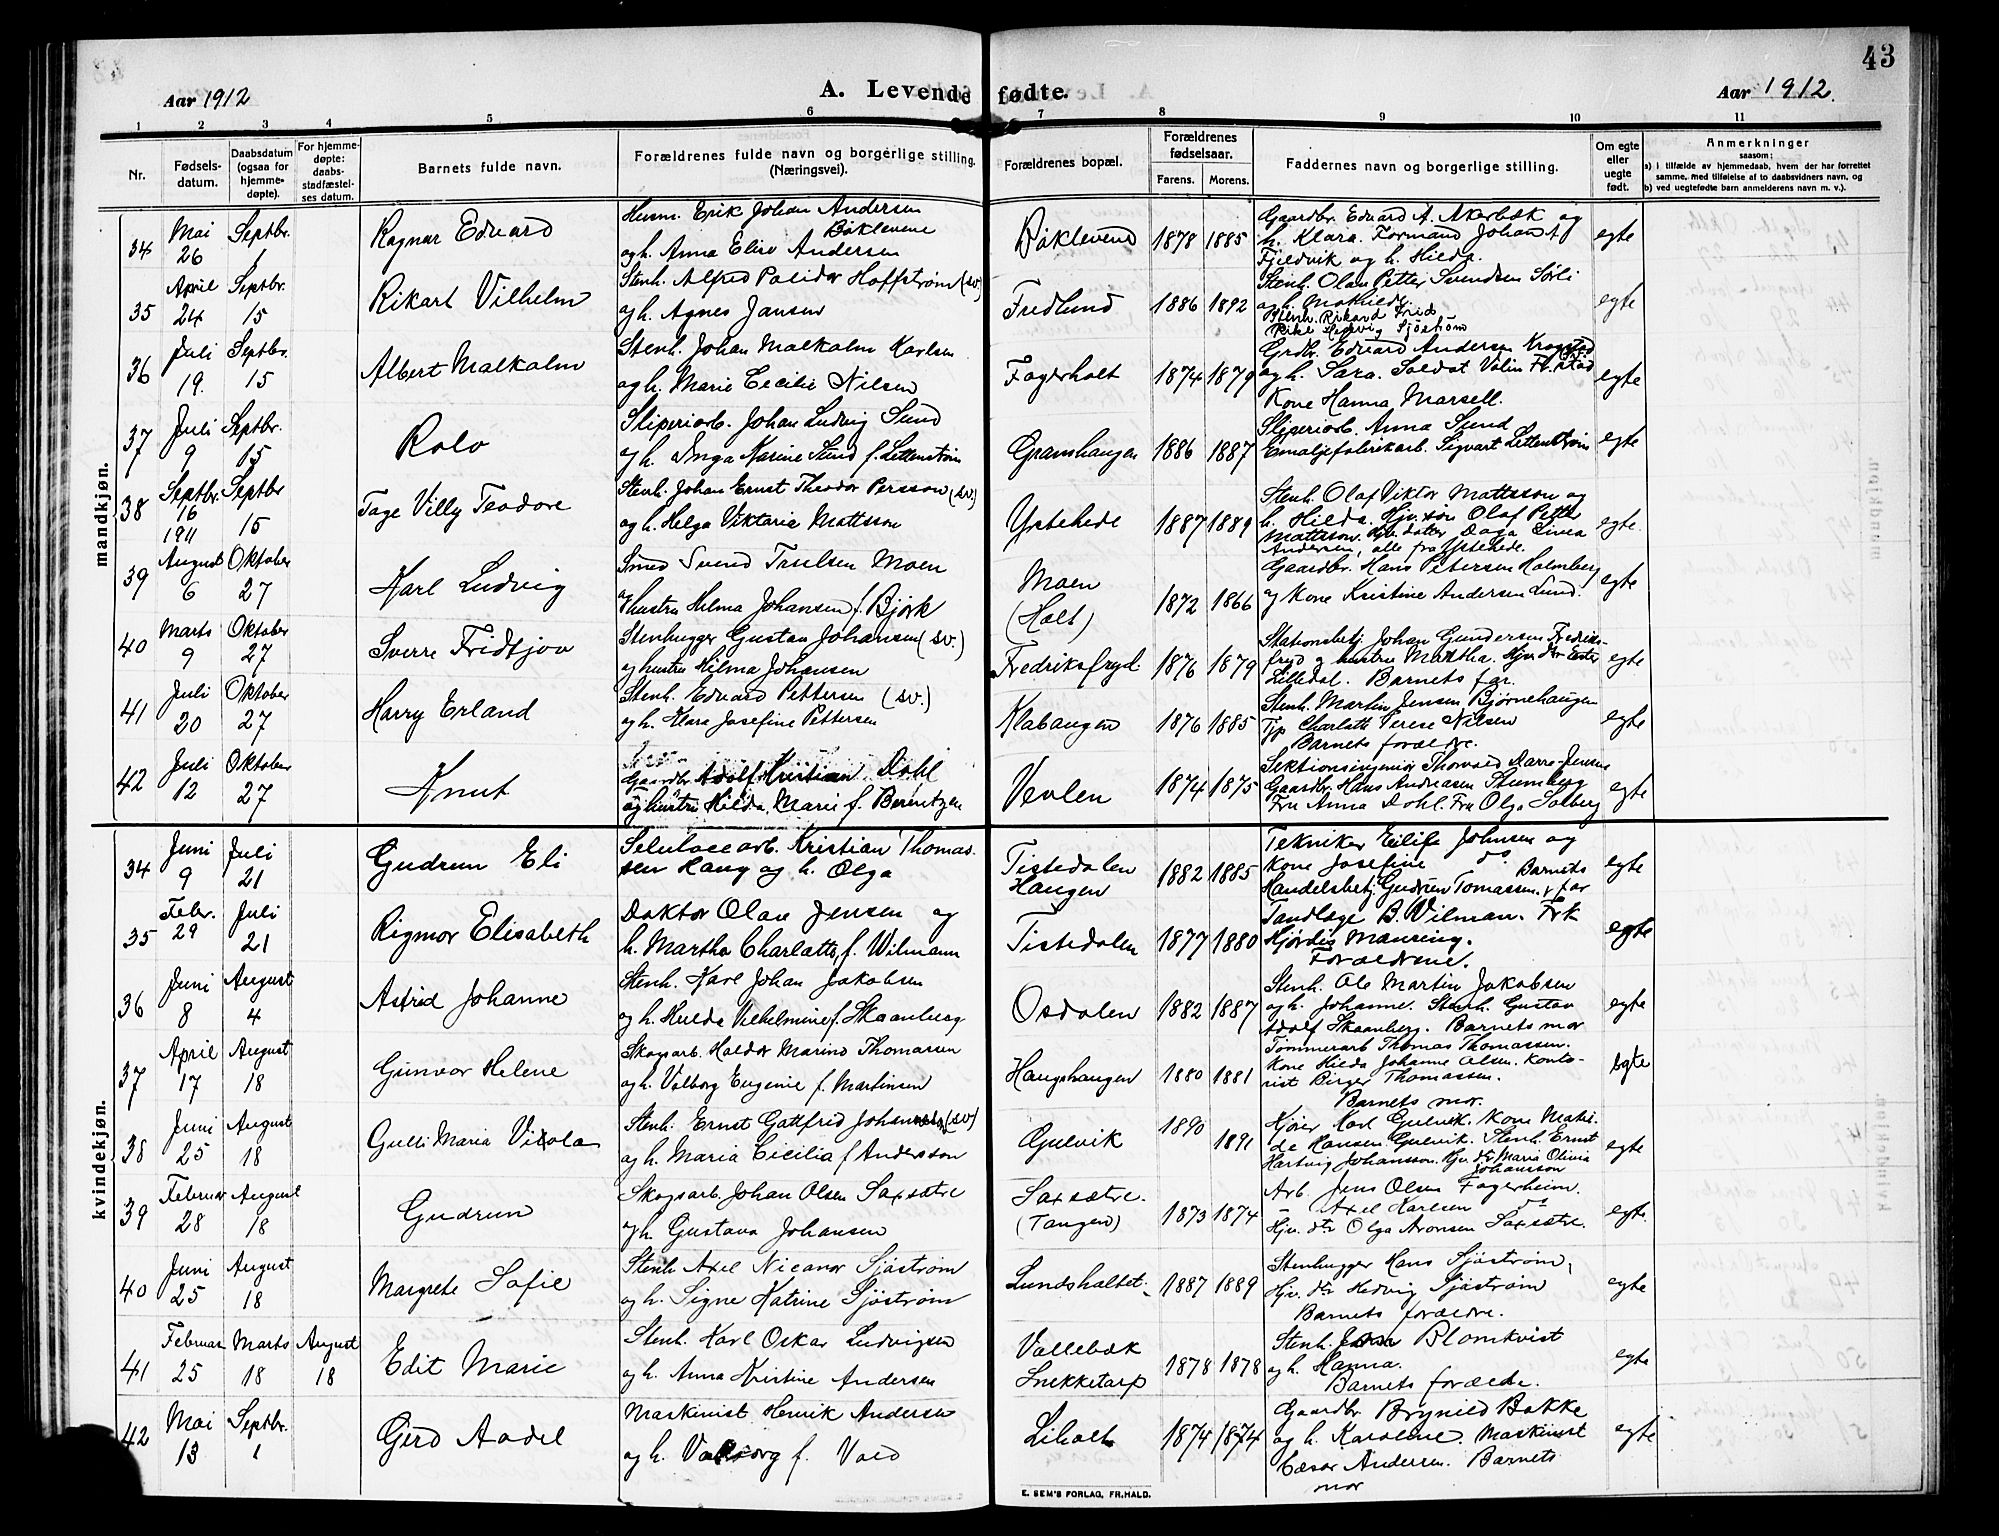 43
Aar 1912
A. Levende fødte.
Aar 1912.
1 2 3 4 5 6 7 8 9 10 11
Nr.
Fødsels-
datum.
Daabsdatum
(ogsaa for
hjemme-
døpte).
For hjemme-
døpte:
daabs-
stadfæstel-
ses datum.
Barnets fulde navn.
Forældrenes fulde navn og borgerlige stilling.
(Næringsvei).
Forældrenes bopæl.
Forældrenes
fødselsaar.
Farens. Morens.
Faddernes navn og borgerlige stilling.
Om egte
eller
uegte
født.
Anmerkninger
saasom:
a) i tilfælde av hjemmedaab, hvem der har forrettet
samme, med tilføielse af to daabsvidners navn, og
b) ved uegtefødte barn anmelderens navn m. v.).
mandkjøn.
34 Mai 26 Septbr. 1 Ragnar Edvard
Husm. Erik Johan Andersen
Bøklevene
og h. Anna Elise Andersen
Bøklevene 1878 1885
Gaardbr. Edvard A. Akerbæk og
h. Klara. Formand Johan A
Fjeldvik og h. Hilda.
egte
35 April 24 Septbr. 15 Rikart Vilhelm
Stenh. Alfred Polidor Hoffstrøm (sv.)
og h. Agnes Jansen
Fredlund 1886 1892
Stenh. Olan Petter Svendsen Sørli
og h. Mathilde.
Stenh. Rikard Frid
Pike Hedvig Sjöström
egte
36 Juli 19. Septbr. 15 Albert Malkolm
Stenh. Johan Malkolm Karlsen
og h. Marie Cecilie Nilsen
Fagerholt 1874 1879
Grdbr. Edvard Andersen Krogstad
og h. Sara. Soldat Valin Fr.stad
Kone Hanna Marsell.
egte
37 Juli 9 Septbr. 15 Rolv
Sliperiarb. Johan Ludvig Sund
og h. Inga Karine Sund f. Lettenstrøm
Gramshaugen 1886 1887
Sliperiarb. Anna Sund
Emaljefabrikarb. Sigvart Lettenstrøm
egte
38 Septbr. 16 1911 Septbr 15 Tage Villy Teodore
Stenh. Johan Ernst Theodor Persson (sv.)
og h. Helga Viktoria Mattsson
Ystehede 1887 1889
Stenh. Olaf Viktor Mattsson og
h. Hilda. Hjv. søn Olaf Petter
Mattsson. Hjv. dater Daga Linea
Andersen, alle fra Ystehede.
egte.
39 August 6 Oktober 27 Karl Ludvig
Smed Svend Paulsen Moen
og hustru Helma Johansen f. Bjørk
Moen
(Holt) 1872 1866
Gaardbr. Hans Petersen Holmberg
og Kone Kristine Andersen Lund.
egte
40 Marts 9 Oktober 27 Sverre Fridtjov
Stenhugger Gustav Johansen (sv.)
og hustru Hilma Johansen
Fredriksfryd 1876 1879
Stationsbetj. Johan Gundersen Fredriks-
fryd og hustru Martha. Hjv. dtr Ester
Lilledal. Barnets far.
egte
41 Juli 20 Oktober 27 Harry Erland
Stenh. Edvard Pettersen (sv.)
og h. Klara Josefine Pettersen
Klabaugen 1876 1885
Stenh. Martin Jensen Bjørnehaugen
Tjp Charlotte Verese Nilsen
Barnets forældre.
egte
42 Juli 12 Oktober 27 Knut
Gaardbr. Adolf Kristian Dahl
og hustru Hilda Marie f. Berntzen
Vevlen 1874 1875
Sektionsingeniør Thorvald Darre Jensen
Gaardbr. Hans Andreasen Stumberg
Fru Anna Dahl. Fru Olga Solberg
egte
kvindekjøn.
34 Juni 9 Juli 21 Gudrun Eli
Selulosearb. Kristian Thomas-
sen Haug og h. Olga
Tistedalen
Haugen 1882 1885
Tekniker Eilife Johnsen og
Kone Josefine do Barnets
Handelsbetj. Gudrun Tomassen. far
egte
35 Febr. 29 Juli 21 Rigmor Elisabeth
Doktor Olav Jensen og
h. Martha Charlotte, f. Wilmann
Tistedalen 1877 1880
Tandlæge B. Vilman. Frk
Hjørdis Mansring.
Forældrene.
egte
36 Juni 8 August 4 Astrid Johanne
Stenh. Karl Johan Jakobsen
og h. Hulda Vilhelmine f. Skaanberg
Osdalen 1882 1887
Stenh. Ole Martin Jakobsen
og h. Johanne. Stenh. Gustav
Adolf Skaanberg. Barnets mor
egte
37 April 17 August 18 Gunvor Helene
Skogsarb. Haldor Marino Thomassen
og h. Valborg Eugenie f. Martinsen
Haugshaugen 1880 1881
Tømmerarb Thomas Thomassen.
Kone Hilda Johanne Olsen. Konto-
rist Birger Thomassen.
Barnets mor.
egte
38 Juni 25 August 18 Gulli Maria Viola
Stenh. Ernst Gottfrid Johansson (sv)
og h. Maria Cecilia f Andersson
Gulvik 1890 1891
Kjører Karl Gulvik. Kone Mathil-
de Hansen Gulvik. Stenh. Ernst
Hartvig Johansson. Hjv. dtr Maria Olivia
Johansson
egte
39 Februar 28 August 18 Gudrun
Skogsarb. Johan Olsen Saxsætre
og h. Gustava Johansen
Saxsætre.
(Tangen) 1873 1874
Arb. Jens Olsen Fagerheim.
– Axel Karlsen do
Hjv. dtr Olga Aronsen Saxsætre.
egte.
40 Juni 25 August 18 Margrete Sofie
Stenh Axel Nicanor Sjöström
og h. Signe Katrine Sjöström
Lundsholtet. 1887 1889
Stenhugger Hans Sjöström,
Hjv. dtr Hedvig Sjöström
Barnets forældre.
egte
41 Februar 25 Marts 18 August 18 Edit Marie
Stenh. Karl Oskar Ludvigsen
og h. Anna Kristine Andersen
Vallebæk
Snekketorp 1878 1878
Stenh. Blomkvist
og h. Hanna.
Barnets forældre.
egte
42 Mai 13 Septbr. 1 Gerd Aadel
Maskinist Henrik Andersen
og h. Valborg f. Vold
Liholt 1874 1874
Gaardbr Brynild Bakke
og h. Karoline. Maskinist
Cæsar Andersen. Barnets
mor
egte
E. SEM'S FORLAG, FR.HALD.